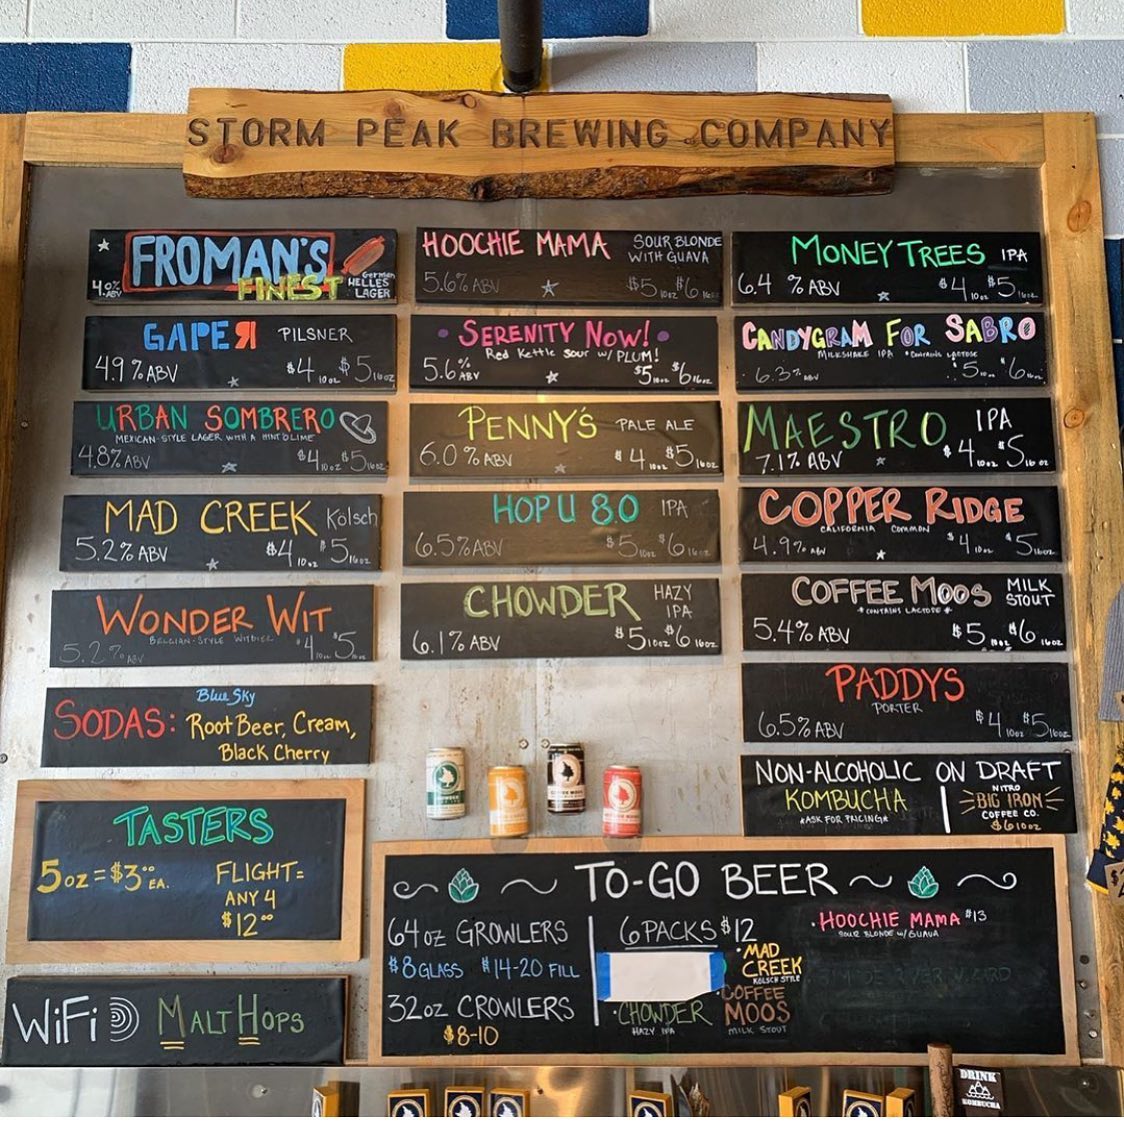 STORM PEAK BREWING COMPANY
FROMAN'S
FINEST
4.0%
ABV
German
HELLES
LAGER
GAPER PILSNER
4.9% ABV $4 10oz $5 16oz
URBAN SOMBRERO
MEXICAN-STYLE LAGER WITH A HINT O'LIME
4.8% ABV $4 10oz $5 16oz
MAD CREEK Kölsch
5.2% ABV $4 10oz $5 16oz
WONDER WIT
BELGIAN-STYLE WITBIER
5.2% ABV $4 10oz $5 16oz
SODAS: Blue Sky
Root Beer, Cream,
Black Cherry
TASTERS
5oz = $3.00 EA.
FLIGHT=
ANY 4
$12.00
WiFi MALTHOPS
HOOCHIE MAMA SOUR BLONDE
WITH GUAVA
5.6% ABV $5 10oz $6 16oz
SERENITY NOW!
Red Kettle Sour w/ PLUM!
5.6% ABV $5 10oz $6 16oz
PENNY'S PALE ALE
6.0% ABV $4 10oz $5 16oz
HOP U 8.0 IPA
6.5% ABV $5 10oz $6 16oz
CHOWDER HAZY
IPA
6.1% ABV $5 10oz $6 16oz
MONEY TREES IPA
6.4 % ABV $4 10oz $5 16oz
CANDYGRAM FOR SABRO
MILKSHAKE IPA *CONTAINS LACTOSE
6.3% ABV $5 10oz $6 16oz
MAESTRO IPA
7.1% ABV $4 10oz $5 16oz
COPPER RIDGE
CALIFORNIA COMMON
4.9% ABV $4 10oz $5 16oz
COFFEE MOOS MILK
STOUT
*CONTAINS LACTOSE*
5.4% ABV $5 10oz $6 16oz
PADDYS
PORTER
6.5% ABV $4 10oz $5 16oz
NON-ALCOHOLIC ON DRAFT
KOMBUCHA
*ASK FOR PRICING*
NITRO
BIG IRON
COFFEE CO.
$6 10oz
TO-GO BEER
64oz GROWLERS
$8 GLASS $14-20 FILL
32oz CROWLERS
$8-10
6 PACKS $12
MAD
CREEK
KOLSCH STYLE
CHOWDER
HAZY IPA
COFFEE
MOOS
MILK STOUT
HOOCHIE MAMA $13
SOUR BLONDE w/ GUAVA
DRINK
KOMBUCHA